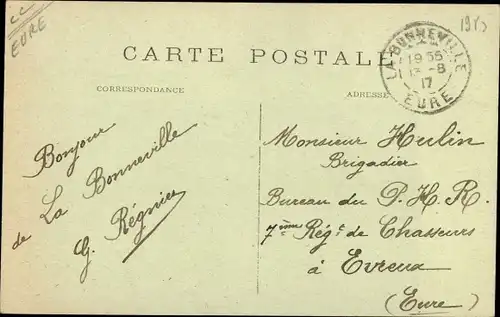 CC
EURE
CARTE POSTALE
LA BONNEVILLE
1955
13-8
17
EURE
CORRESPONDANCE
ADRESSE
Bonjour
de La Bonneville
G. Régnier
Monsieur Hulin
Brigadier
Bureau du P. H. R.
7ème Régt de Chasseurs
à Evreux
(Eure)